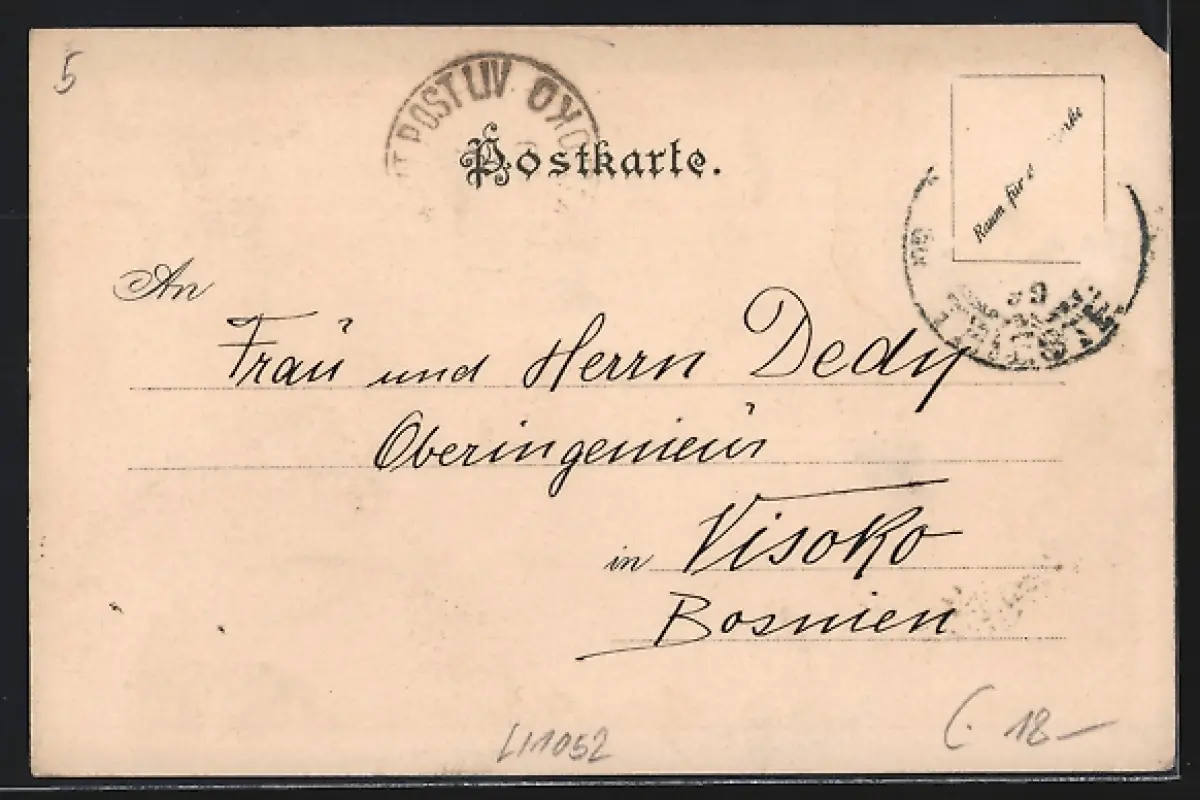 5
POST LIV
Postkarte.
Raum für
An
Fraŭ und Herrn Dedy
Oberingenieŭr
in Visoko
Bosnien
LI1052
18—